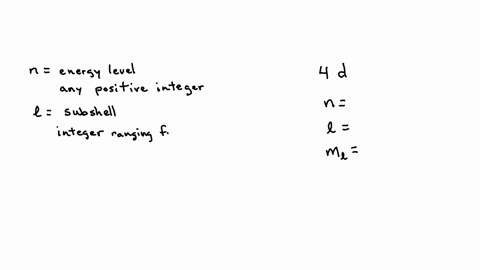 n = energy level
any positive integer
l = subshell
integer ranging f.
4 d
n =
l =
mₗ =